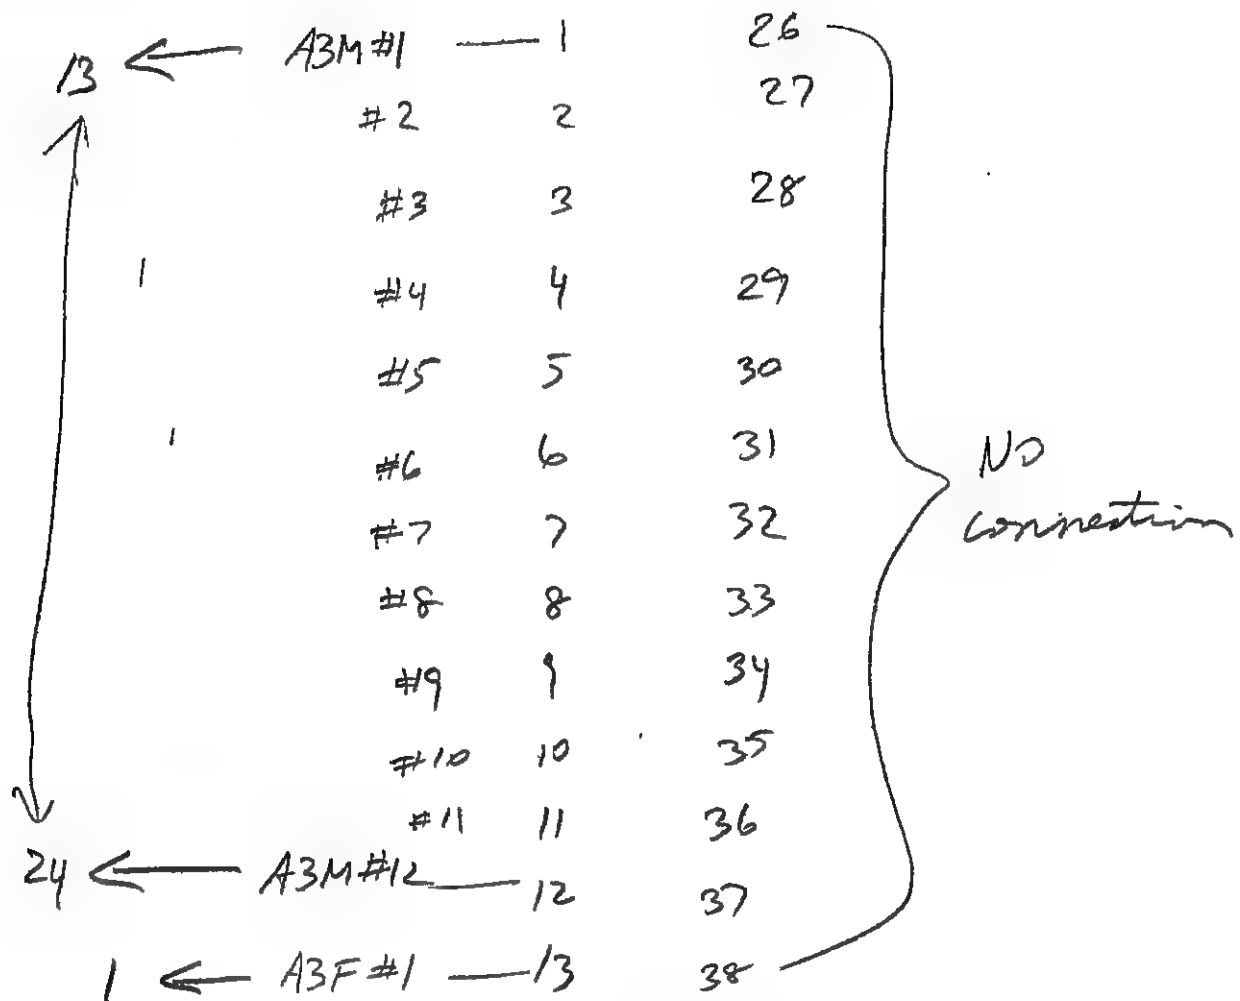 13 A3M #1 1 26
#2 2 27
#3 3 28
#4 4 29
#5 5 30
#6 6 31
#7 7 32
#8 8 33
#9 9 34
#10 10 35
#11 11 36
24 A3M #12 12 37
1 A3F #1 13 38
NO
connection